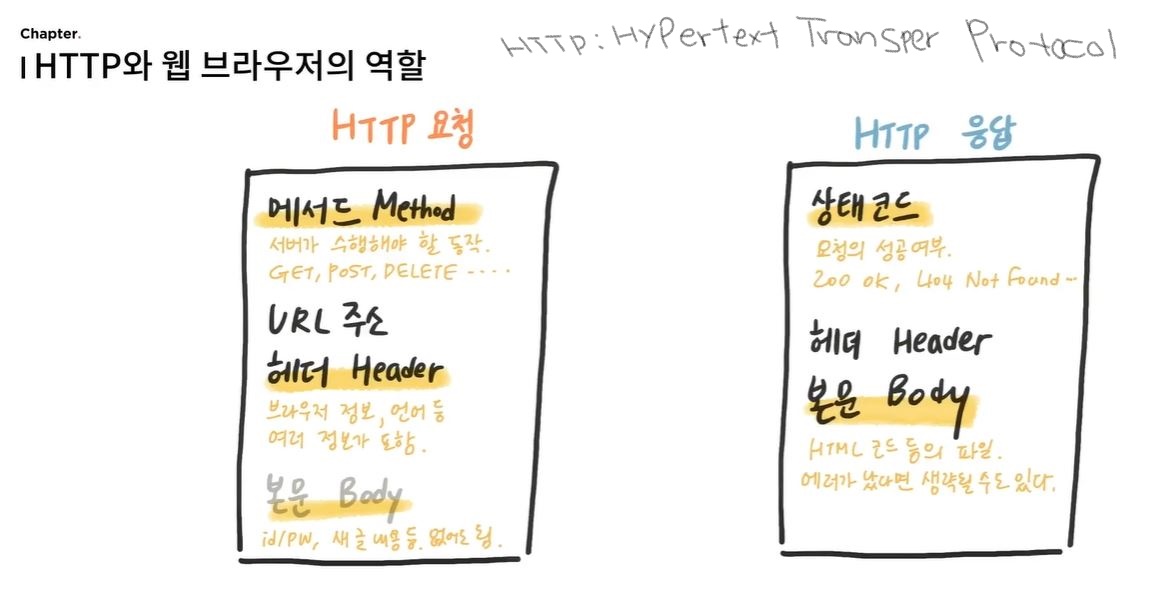 Chapter.
| HTTP와 웹 브라우저의 역할
HTTP : HyPertext Transper Protocol
HTTP 요청
메서드 Method
서버가 수행해야 할 동작.
GET, POST, DELETE ....
URL 주소
헤더 Header
브라우저 정보, 언어 등
여러 정보가 포함.
본문 Body
id/PW, 새 글 내용 등. 없어도 됨.
HTTP 응답
상태코드
요청의 성공여부.
200 OK, 404 Not Found ...
헤더 Header
본문 Body
HTML 코드 등의 파일.
에러가 났다면 생략될 수도 있다.